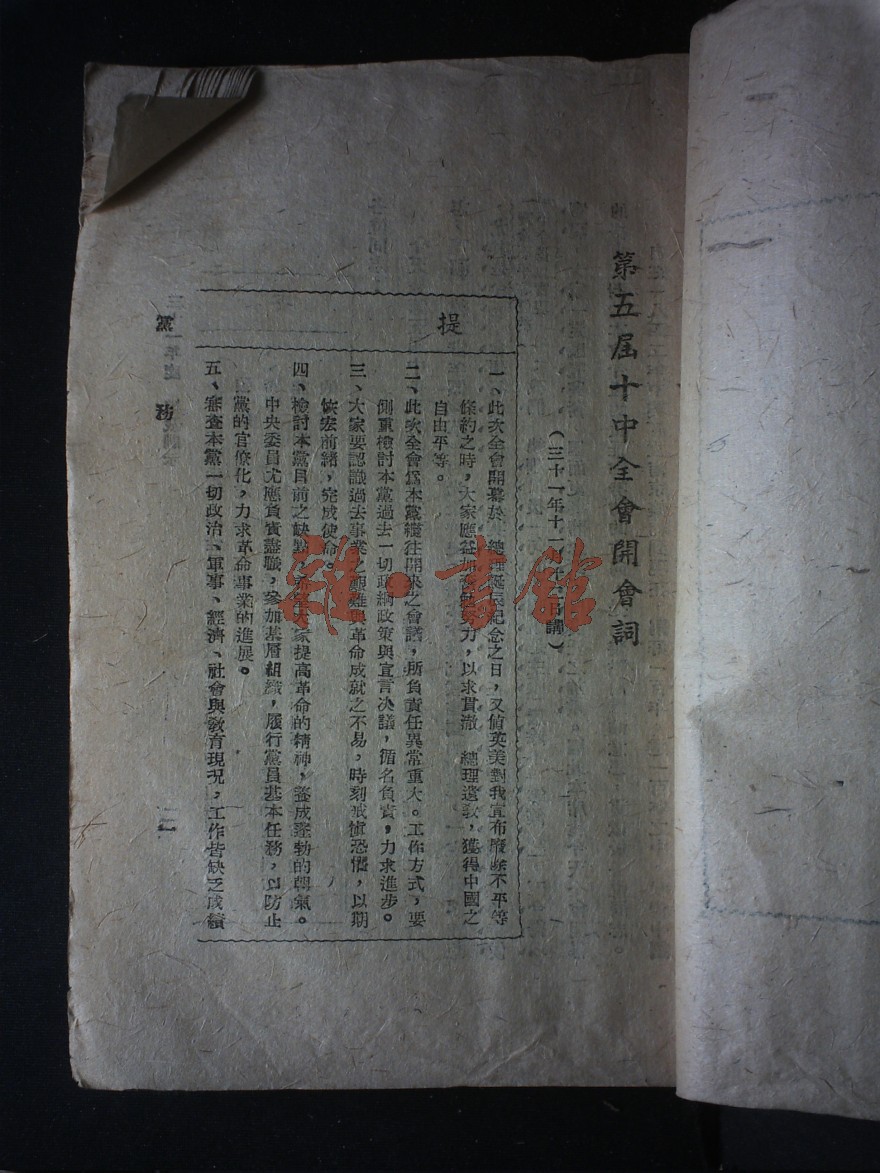 第五屆十中全會開會詞
（三十一年十一月十二日講）
提
一、此次全會開幕於　總理誕辰紀念之日，又值英美對我宣布廢除不平等
條約之時，大家應益加奮勉努力，以求貫澈　總理遺敎，獲得中國之
自由平等。
二、此次全會爲本黨繼往開來之會議，所負責任異常重大。工作方式，要
側重檢討本黨過去一切政綱政策與宣言决議，循名負責，力求進步。
三、大家要認識過去事業之艱難與革命成就之不易，時刻戒愼恐懼，以期
恢宏前緒，完成使命。
四、檢討本黨目前之缺點，希望大家提高革命的精神，養成蓬勃的朝氣。
中央委員尤應負責盡職，參加基層組織，履行黨員基本任務，以防止
黨的官僚化，力求革命事業的進展。
五、審查本黨一切政治、軍事、經濟、社會與敎育現况，工作皆缺乏成績
黨　務
雜·書館